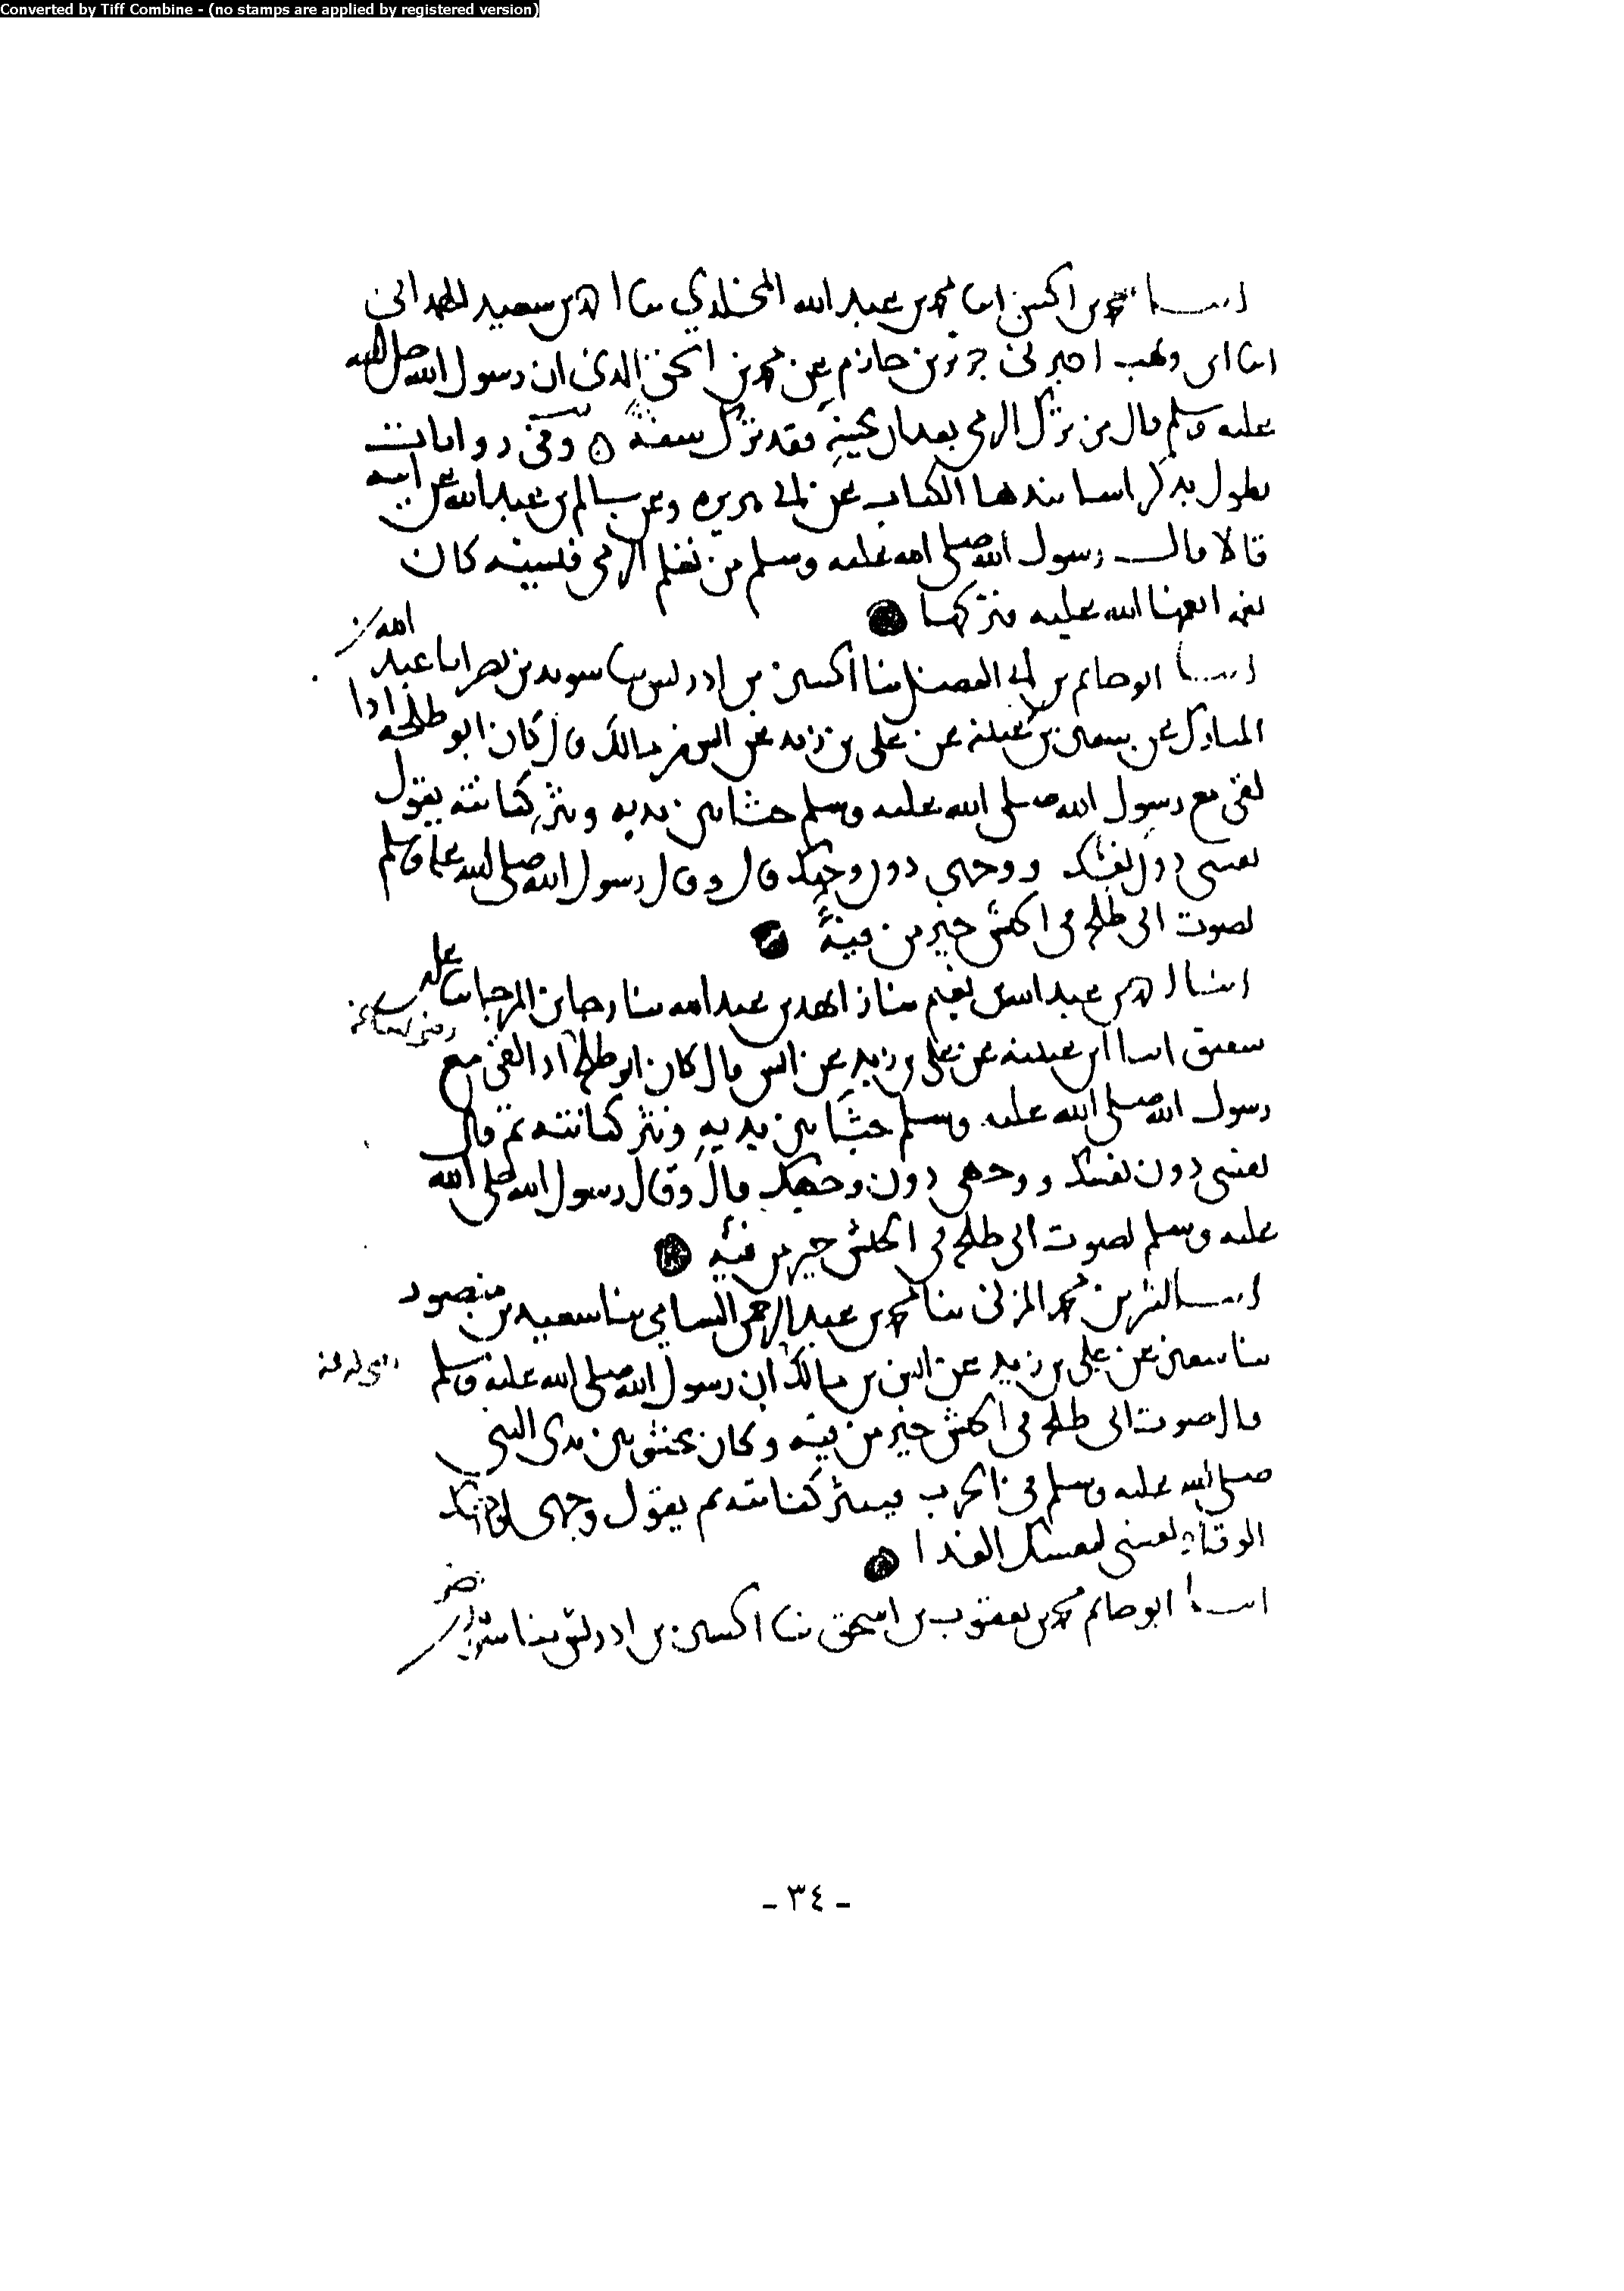 Converted by Tiff Combine - (no stamps are applied by registered version)
محمد بن الحسن انبا محمد بن عبد الله المخلدي ثنا احمد بن سعيد الهمداني
انبا ابن وهب اخبرني جرير بن حازم عن محمد بن ان رسول الله صلى الله
عليه وسلم قال من ترك الرمي بعد ان فقد ترك سنة وفي روايات
يطول بذكر اسانيدها الكتاب عن ابي هريره وعن سالم بن عبد الله عن ابيه
قالا قال رسول الله صلى الله عليه وسلم من تعلم الرمي فنسيه كان
نعمه انعمها الله عليه فتركها
ابو حاتم بن ابي الفضل ثنا الحسين بن ادريس ثنا سويد بن نصر انبا عبد الله بن
المبارك عن سفين بن عيينة عن علي بن زيد عن انس بن مالك قال كان ابو طلحه اذا
لقي مع رسول الله صلى الله عليه وسلم جثا بين يديه ونثر كنانته يقول
نفسي دون نفسك ووجهي دون وجهك قال وقال رسول الله صلى الله عليه وسلم
لصوت ابي طلحة في الجيش خير من فئة
عبد الله بن نعيم ثنا بن عبد الله ثنا رجا بن المرجا ثنا علي بن
شقيق انبا ابن عيينة عن علي بن زيد عن انس قال كان ابو طلحة اذا لقي مع
رسول الله صلى الله عليه وسلم جثا بين يديه ونثر كنانته ثم قال
نفسي دون نفسك ووجهي دون وجهك قال وقال رسول الله صلى الله
عليه وسلم لصوت ابي طلحة في الجيش خير من فئة
بن محمد المزني ثنا محمد بن عبد الرحمن السامي ثنا سعيد بن منصور
ثنا سفين عن علي بن زيد عن انس بن مالك ان رسول الله صلى الله عليه وسلم
قال صوت ابي طلحة في الجيش خير من فئة وكان يجثو بين يدي النبي
صلى الله عليه وسلم في الحرب فينثر كنانته ثم يقول وجهي لوجهك
الوقا ونفسي لنفسك الفدا
ابو حاتم محمد بن يعقوب بن اسحق ثنا الحسين بن ادريس ثنا سويد بن نصر
- ٣٤ -